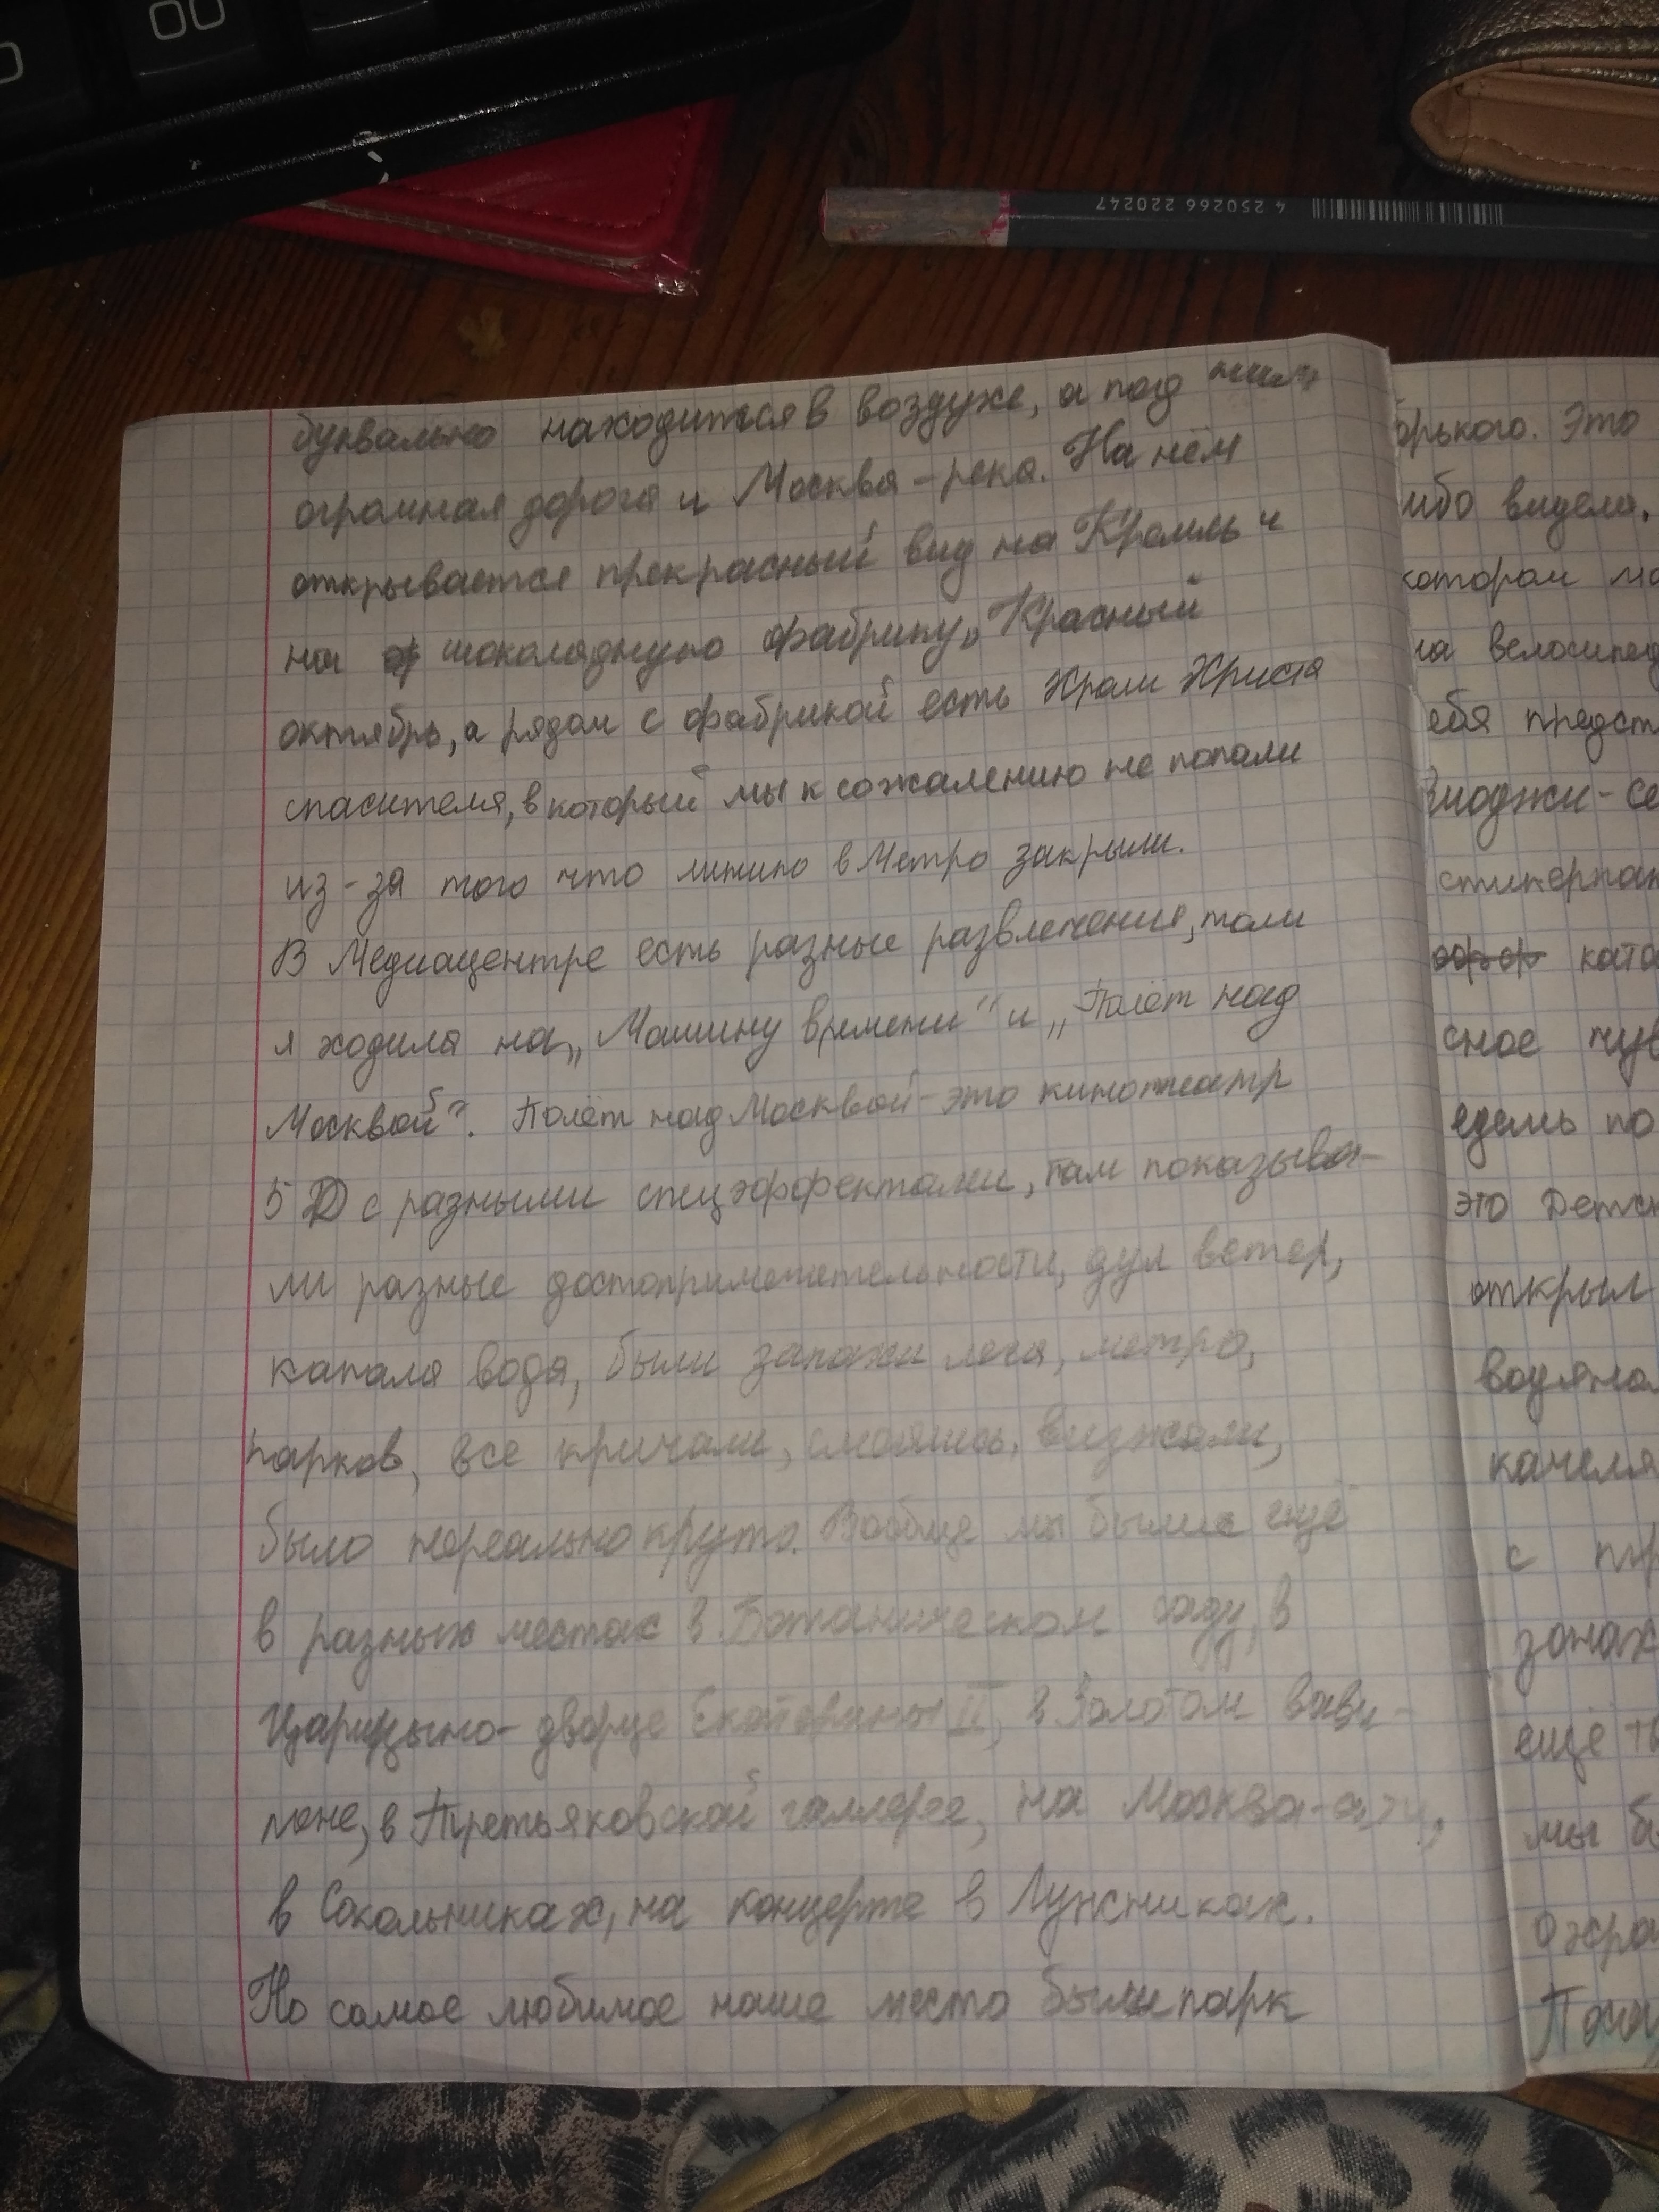 4 250266 220247
буквально находится в воздухе, а под ним
огромная дорога и Москва-река. На нём
открывается прекрасный вид на Кремль и
на шоколадную фабрику „Красный
октябрь, а рядом с фабрикой есть Храм Христа
спасителя, в который мы к сожалению не попали
из-за того что линию в Метро закрыли.
В Медиацентре есть разные развлечения, там
я ходила на „Машину времени“ и „Полёт над
Москвой“. Полёт над Москвой-это кинотеатр
5D с разными спецэффектами, там показыва-
ли разные достопримечательности, дул ветер,
капала вода, были запахи леса, метро,
парков, все кричали, смеялись, визжали,
было нереально круто. Вообще мы были ещё
в разных местах в Ботаническом саду, в
Царицыно-дворце Екатерины II, в Золотом вави-
лоне, в Третьяковской галлерее, на Москва-сити,
в Сокольниках, на концерте в Лужниках.
Но самое любимое наше место были парк
орького. Это
ибо видела.
котором мо
на велосипед
ебя предст
Эмоджи-се
стикерпак
ката
сное чув
едешь по
это Детск
открыл
водяна
качеля
с
зонах
ещё
мы б
охра